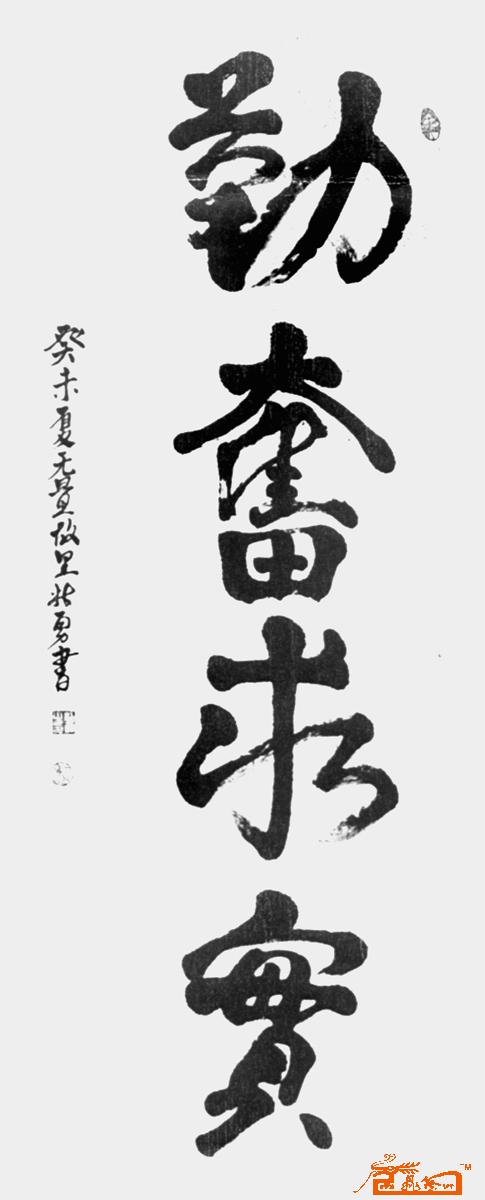 勤奮求實
癸未夏无量故里北勇書